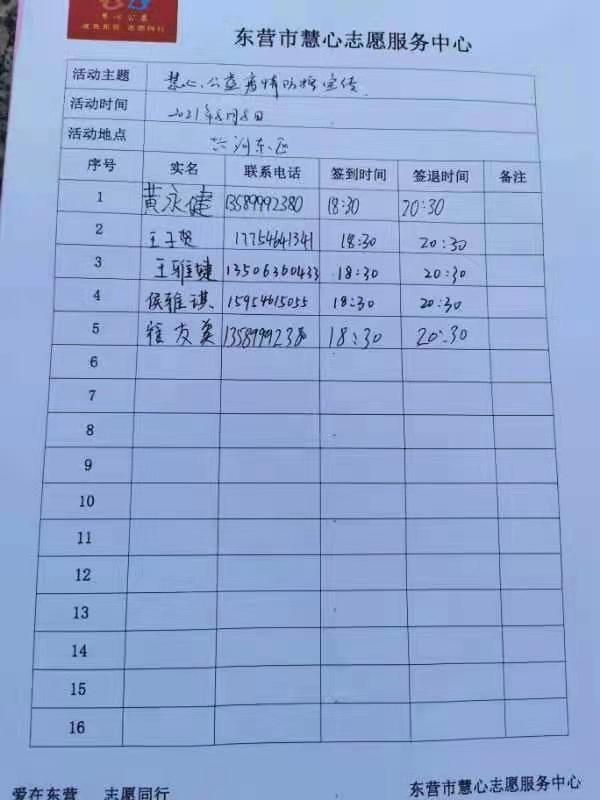 慧心公益
爱在东营 志愿同行
东营市慧心志愿服务中心
活动主题 慧心公益疫情防控宣传
活动时间 2021年8月8日
活动地点 东区
序号 实名 联系电话 签到时间 签退时间 备注
1 黄永健 13589992380 18:30 20:30
2 王子贤 17754641341 18:30 20:30
3 王雅婕 13506360433 18:30 20:30
4 侯雅琪 15954615055 18:30 20:30
5 友 13589992380 18:30 20:30
6
7
8
9
10
11
12
13
14
15
16
爱在东营 志愿同行 东营市慧心志愿服务中心